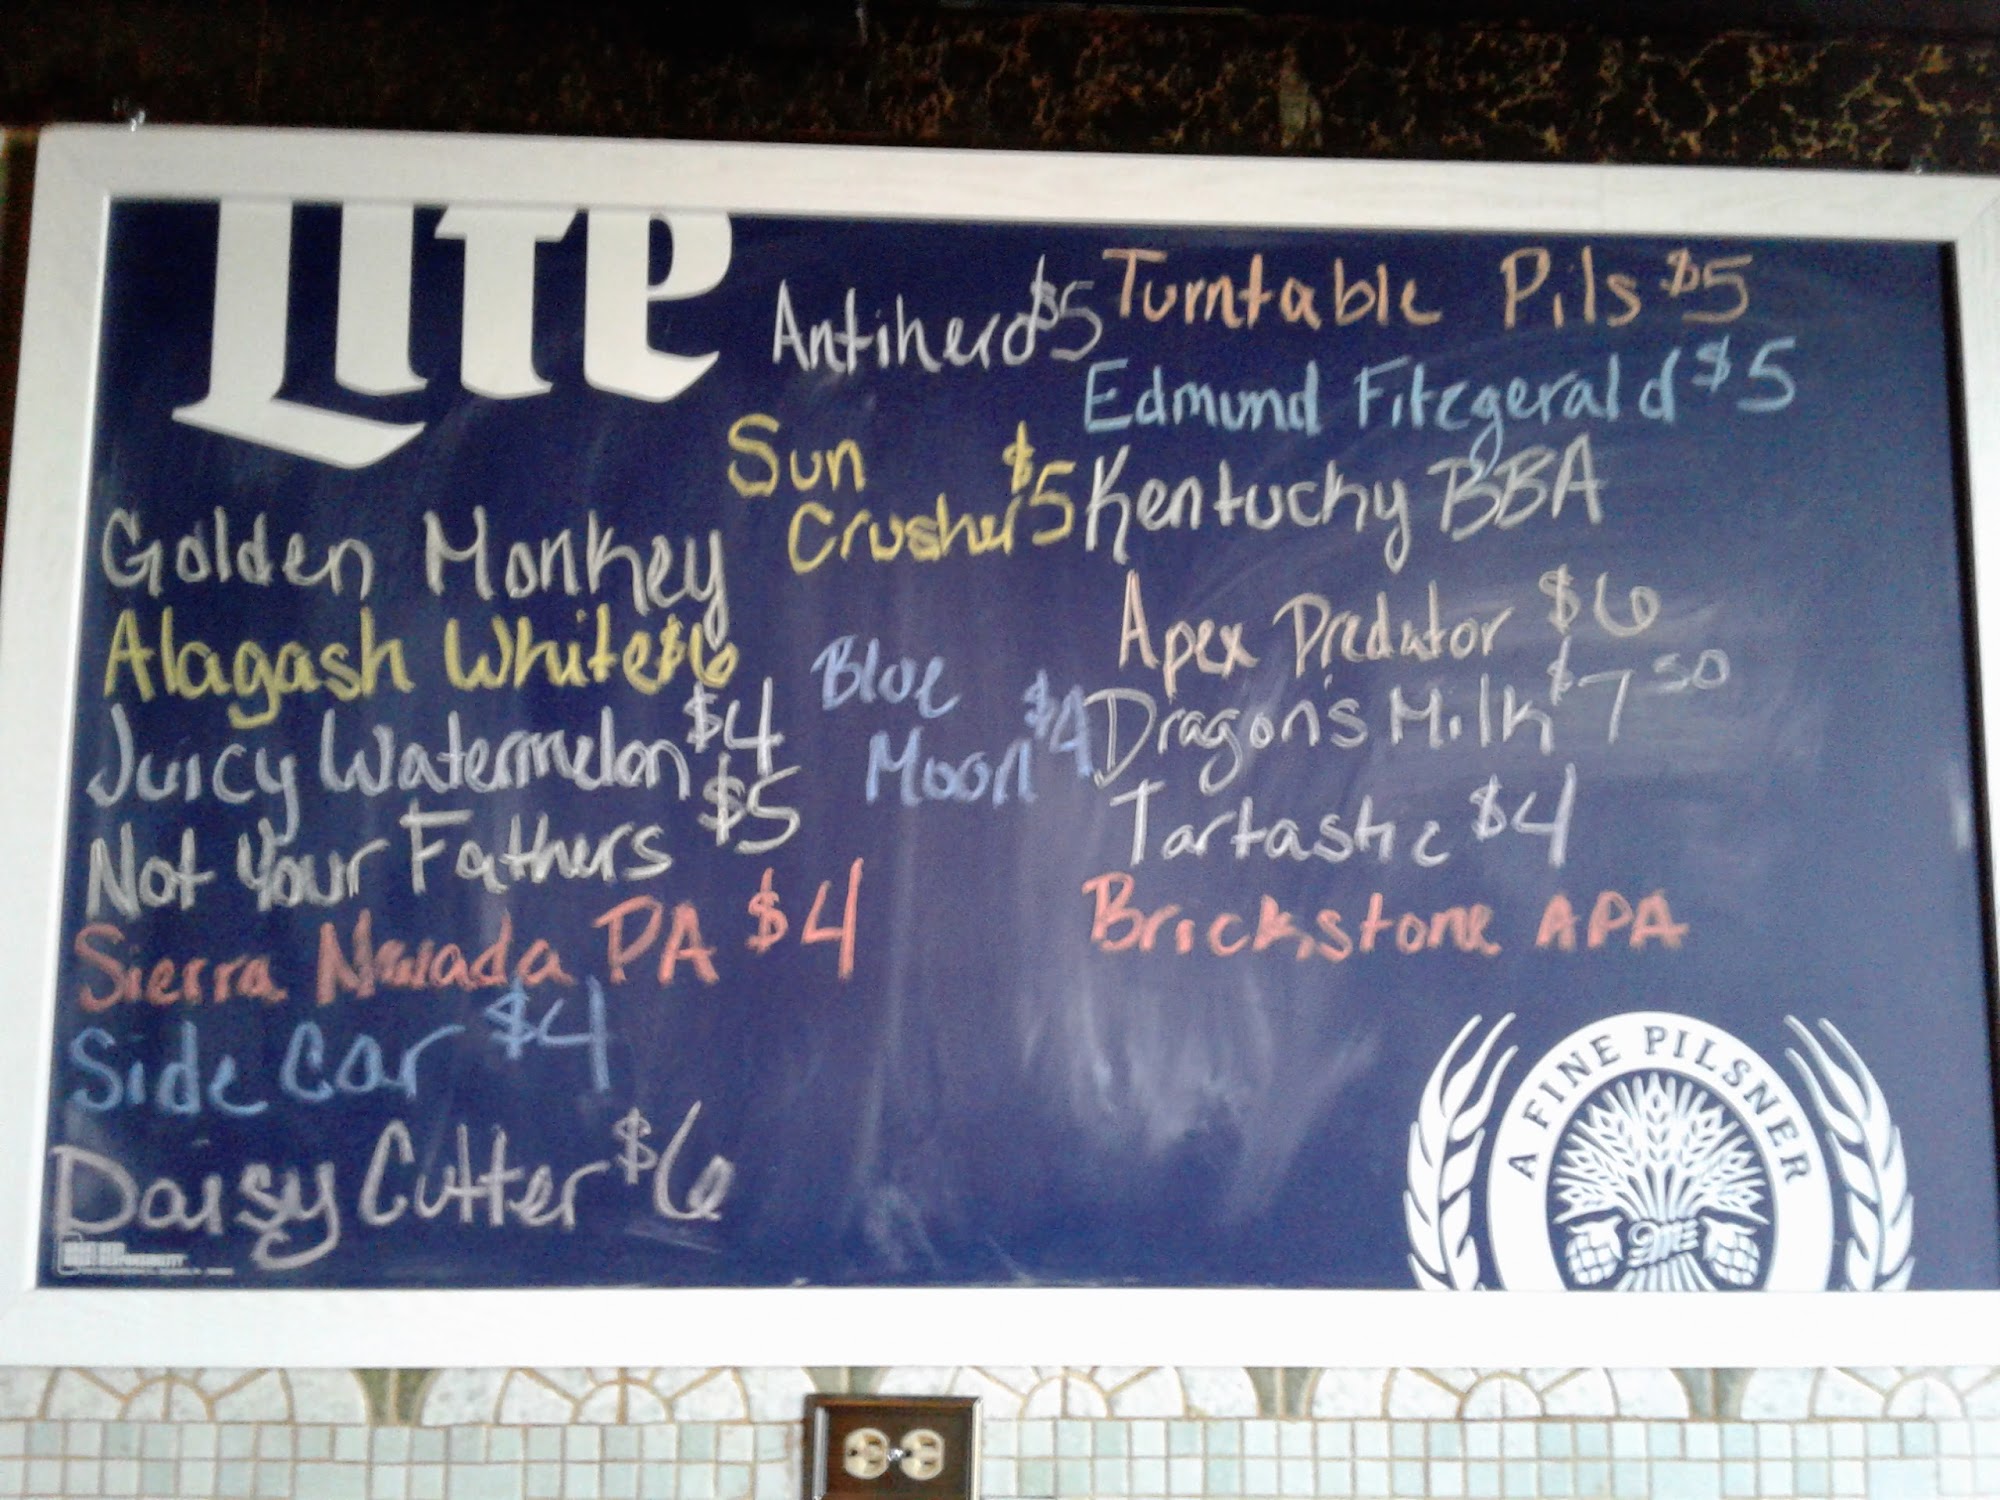 Lite
Golden Monkey
Alagash White $6
Juicy Watermelon $4
Not Your Fathers $5
Sierra Nevada PA $4
Side Car $4
Daisy Cutter $6
Antihero $5
Sun
Crusher $5
Blue
Moon $4
Turntable Pils $5
Edmund Fitzgerald $5
Kentucky BBA
Apex Predator $6
Dragon's Milk $7 50
Tartastic $4
Brickstone APA
A FINE PILSNER